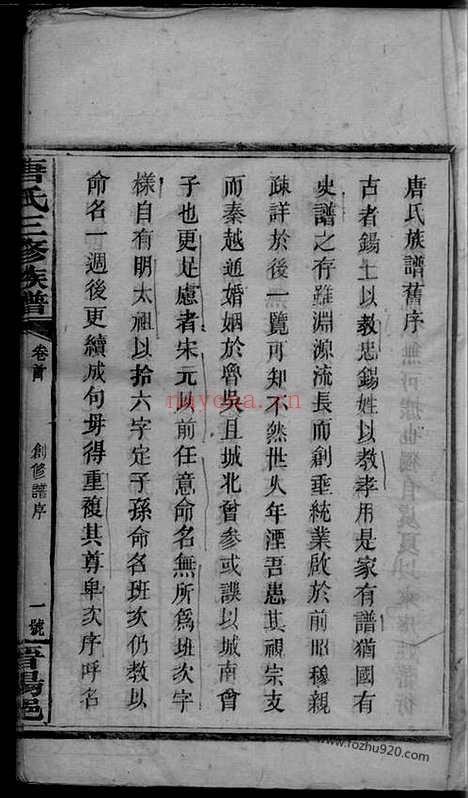 唐氏族譜舊序
古者錫土以教忠錫姓以教孝用是家有譜猶國有
史譜之存雖淵源流長而創垂統業啟於前昭穆親
疎詳於後一覽可知不然世久年湮吾患其視宗支
而秦越通婚姻於魯吳且城北曾參或誤以城南曾
子也更足慮者宋元以前任意命名無所為班次字
樣自有明太祖以拾六字定子孫命名班次仍教以
命名一週後更續成句毋得重複其尊卑次序呼名
唐氏三修族譜
卷首
創修譜序
一號
晋陽邑
nayona.cn
www.fozhu920.com